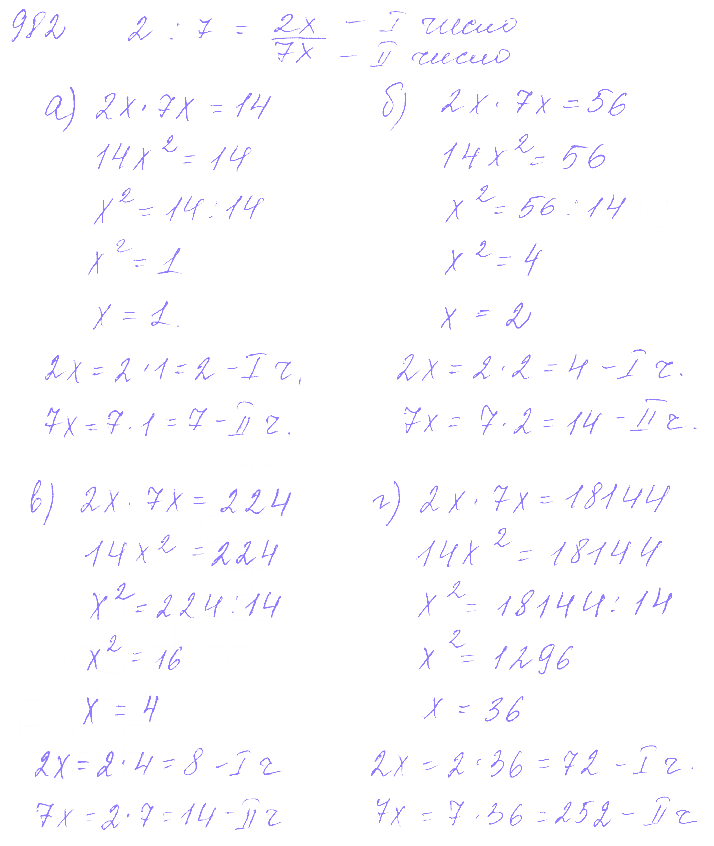 982 2 : 7 = 2x/7x - I число
- II число
а) 2x · 7x = 14
14x² = 14
x² = 14 : 14
x² = 1
x = 1.
2x = 2 · 1 = 2 - I ч.
7x = 7 · 1 = 7 - II ч.
б) 2x · 7x = 56
14x² = 56
x² = 56 : 14
x² = 4
x = 2
2x = 2 · 2 = 4 - I ч.
7x = 7 · 2 = 14 - II ч.
в) 2x · 7x = 224
14x² = 224
x² = 224 : 14
x² = 16
x = 4
2x = 2 · 4 = 8 - I ч
7x = 2 · 7 = 14 - II ч
г) 2x · 7x = 18144
14x² = 18144
x² = 18144 : 14
x² = 1296
x = 36
2x = 2 · 36 = 72 - I ч.
7x = 7 · 36 = 252 - II ч